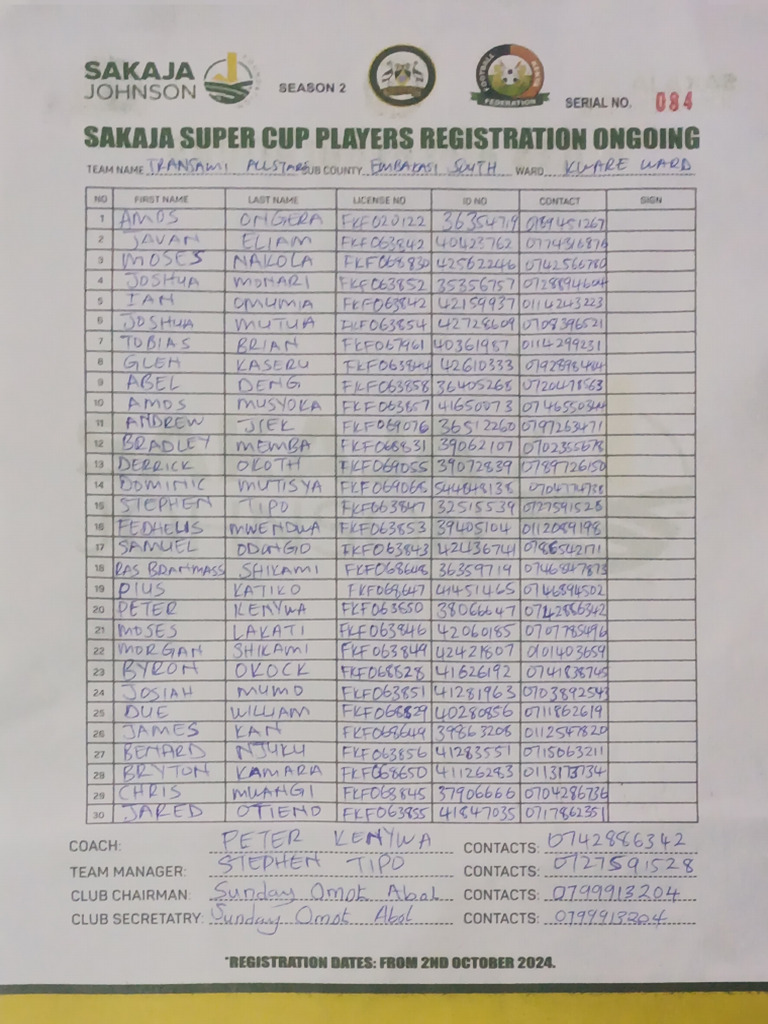 SAKAJA
JOHNSON
SEASON 2
FOOTBALL KENYA
FEDERATION
SERIAL NO. 084
SAKAJA SUPER CUP PLAYERS REGISTRATION ONGOING
TEAM NAME TRANSAMI ALLSTARS SUB COUNTY EMBAKASI SOUTH WARD KWARE WARD
NO FIRST NAME LAST NAME LICENSE NO ID NO CONTACT SIGN
1 AMOS ONGERA FKF020122 36354719
2 JAVAN ELIAM FKF063842 40423762 0774316876
3 MOSES NAKOLA FKF068830 42562246 0742566780
4 JOSHUA MONARI FKF063852 35356757 0728894604
5 IAN OMUMIA FKF063842 42159937 0114243223
6 JOSHUA MUTUA FKF063854 42728609 0708396521
7 TOBIAS BRIAN FKF067961 40361987 0114299231
8 GLEN KASERU 42610333 0792898484
9 ABEL DENG FKF063858 36405268 0720478563
10 AMOS MUSYOKA FKF063857 41650073 0746550344
11 ANDREW JIEK FKF069076 36512260 0797263471
12 BRADLEY MEMBA FKF068831 39062107 0702355678
13 DERRICK OKOTH FKF069055 39072839 0789726150
14 DOMINIC MUTISYA FKF069068 544848138
15 STEPHEN TIPO FKF063847 32515539 0727591528
16 FEDHELIS MWENDWA FKF063853 39405104 0112089198
17 SAMUEL ODONGO FKF063843 42436741
18 RAS BRAHMASS SHIKAMI FKF068648 36359719 0746847873
19 PIUS KATIKO FKF068647 41451465 0746894502
20 PETER KENYWA FKF063850 38066647 0742886342
21 MOSES LAKATI FKF063846 42060185 0707785496
22 MORGAN SHIKAMI FKF063849 42421807 0101403659
23 BYRON OKOCK FKF068828 41626192 0741838745
24 JOSIAH MUMO FKF063851 41281963 0703892543
25 DUE WILLIAM FKF068829 40280856 0711862619
26 JAMES KAN FKF068649 39863208 0112547820
27 BENARD NJUKU FKF063856 41283551 0715063211
28 BRYTON KAMARA FKF068650 41126283 0113173734
29 CHRIS MUANGI FKF063845 37906666 0704286736
30 JARED OTIENO FKF063855 41847035 0717862351
COACH: PETER KENYWA CONTACTS: 0742886342
TEAM MANAGER: STEPHEN TIPO CONTACTS: 0727591528
CLUB CHAIRMAN: Sunday Omot Abol CONTACTS: 0799913204
CLUB SECRETATRY: Sunday Omot Abol CONTACTS: 0799913204
*REGISTRATION DATES: FROM 2ND OCTOBER 2024.